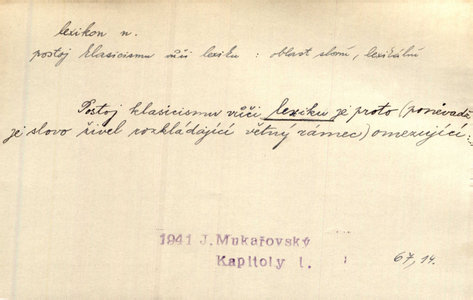 lexikon n.
postoj klasicismu vůči lexiku : oblast slovní, lexikální
Postoj klasicismu vůči lexiku je proto (poněvadž
je slovo živel rozkládající větný rámec) omezující:
1941 J. Mukařovský
Kapitoly I.
67, 14.